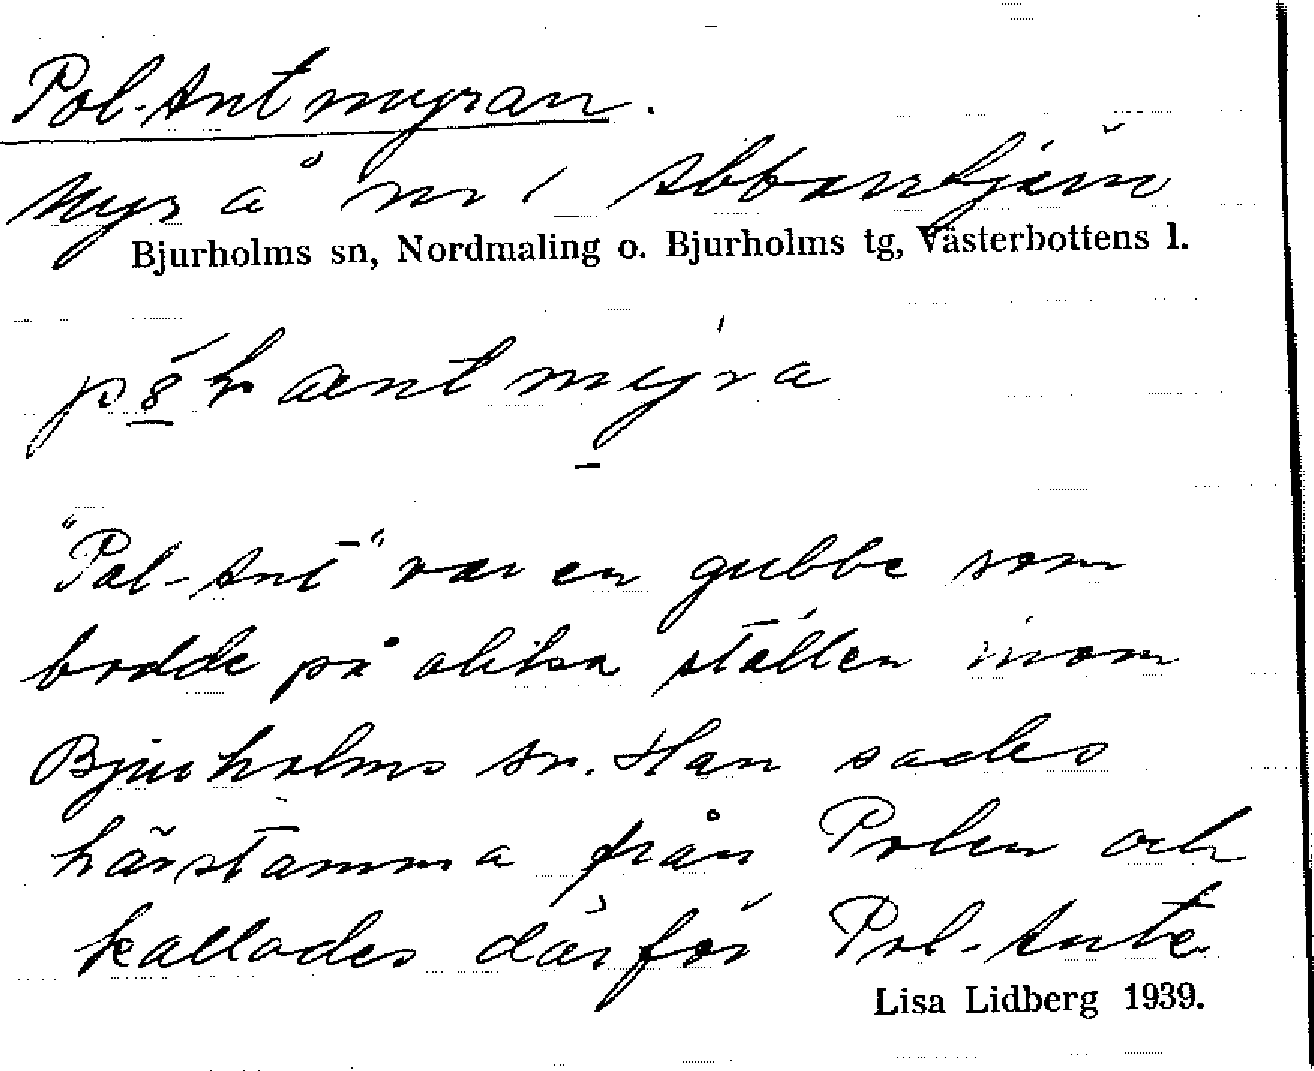 Pol-Antmyran.
Myr å nr 1 Abborrtjärn
Bjurholms sn, Nordmaling o. Bjurholms tg, Västerbottens l.
"Pol-Ant" var en gubbe som
bodde på olika ställen inom
Bjurholms sn. Han sades
härstamma från Polen och
kallades därför Pol-Ante
Lisa Lidberg 1939.